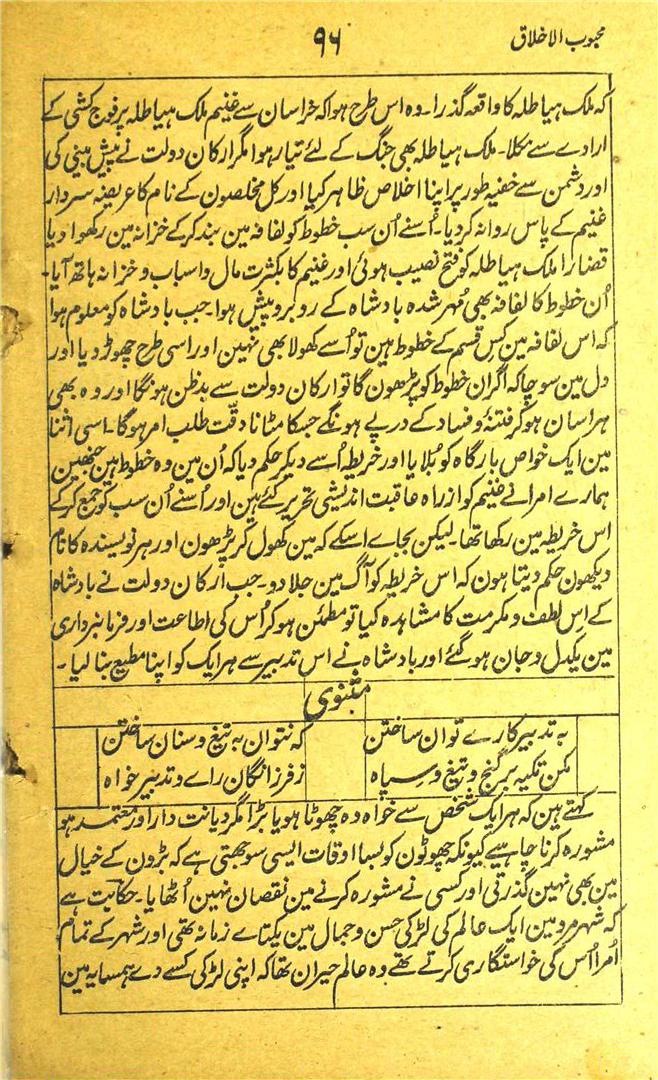 محبوب الاخلاق
۹۶
کہ ملک ہیاطلہ کا واقعہ گذرا۔ وہ اس طرح ہوا کہ خراسان سے غنیم ملک ہیاطلہ پر فوج کشی کے
ارادے سے نکلا۔ ملک ہیاطلہ بھی جنگ کے لئے تیار ہوا مگر ارکان دولت نے پیش بینی کی
اور دشمن سے خفیہ طور پر اپنا اخلاص ظاہر کیا اور کل مخلصون کے نام کا عریضہ سردار
غنیم کے پاس روانہ کر دیا۔ اُسنے اُن سب خطوط کو لفافہ مین بند کرکے خزانہ مین رکھوا دیا
قضارا ملک ہیاطلہ کو فتح نصیب ہوئی اور غنیم کا بکثرت مال و اسباب و خزانہ ہاتھ آیا۔
اُن خطوط کا لفافہ بھی مُہر شدہ بادشاہ کے روبرو پیش ہوا۔ جب بادشاہ کو معلوم ہوا
کہ اس لفافہ مین کس قسم کے خطوط ہین تو اُسے کھولا بھی نہین اور اسی طرح چھوڑ دیا اور
دل مین سوچا کہ اگر ان خطوط کو پڑھون گا تو ارکان دولت سے بدظن ہونگا اور وہ بھی
ہراسان ہو کر فتنۂ و فساد کے درپے ہونگے جسکا مٹانا دقت طلب امر ہوگا۔ اسی اثنا
مین ایک خواص بارگاہ کو بُلایا اور خریطہ اُسے دیکر حکم دیا کہ اُن مین وہ خطوط ہین جنھین
ہمارے امرا نے غنیم کو از راہ عاقبت اندیشی تحریر کئے ہین اور اُسنے اُن سب کو جمع کرکے
اس خریطہ مین رکھا تھا۔ لیکن بجاے اسکے کہ مین کھول کر پڑھون اور ہر نویسندہ کا نام
دیکھون حکم دیتا ہون کہ اس خریطہ کو آگ مین جلا دو۔ جب ارکان دولت نے بادشاہ
کے اِس لطف و مکرمت کا مشاہدہ کیا تو مطمئن ہو کر اُس کی اطاعت اور فرمانبرداری
مین یکدل و جان ہو گئے اور بادشاہ نے اس تدبیر سے ہر ایک کو اپنا مطیع بنا لیا۔
مثنوی
بہ تدبیر کارے توان ساختن
کہ نتوان بہ تیغ و سنان ساختن
مکن تکیہ بر گنج و تیغ و سپاہ
ز فرزانگان راے و تدبیر خواہ
کہتے ہین کہ ہر ایک شخص سے خواہ وہ چھوٹا ہو یا بڑا مگر دیانت دار اور معتمد ہو
مشورہ کرنا چاہیے کیونکہ چھوٹون کو بسا اوقات ایسی سوجھتی ہے کہ بڑون کے خیال
مین بھی نہین گذرتی اور کسی نے مشورہ کرنے مین نقصان نہین اُٹھایا۔ حکایت ہے
کہ شہر مرو مین ایک عالم کی لڑکی حسن و جمال مین یکتاے زمانہ تھی اور شہر کے تمام
اُمرا اُس کی خواستگاری کرتے تھے وہ عالم حیران تھا کہ اپنی لڑکی کسے دے ہمسایہ مین